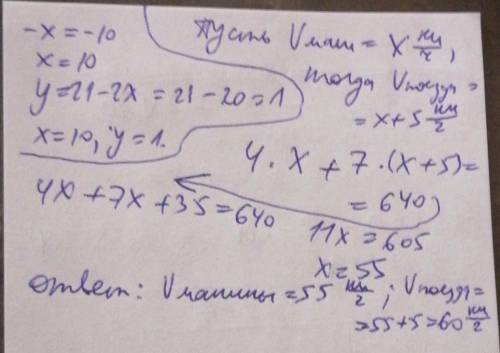 -x = -10
x = 10
y = 21 - 2x = 21 - 20 = 1
x = 10, y = 1.
Пусть Vмаш = x км/ч,
тогда Vпоезд =
= x + 5 км/ч
4 · x + 7 · (x + 5) =
= 640
4x + 7x + 35 = 640
11x = 605
x = 55
Ответ: Vмашины = 55 км/ч; Vпоезд =
= 55 + 5 = 60 км/ч